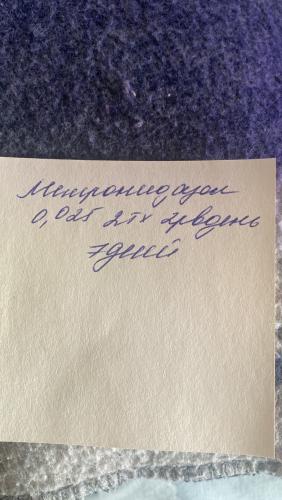 Метронидазол
0,025 2тх 2рвдень
7дней